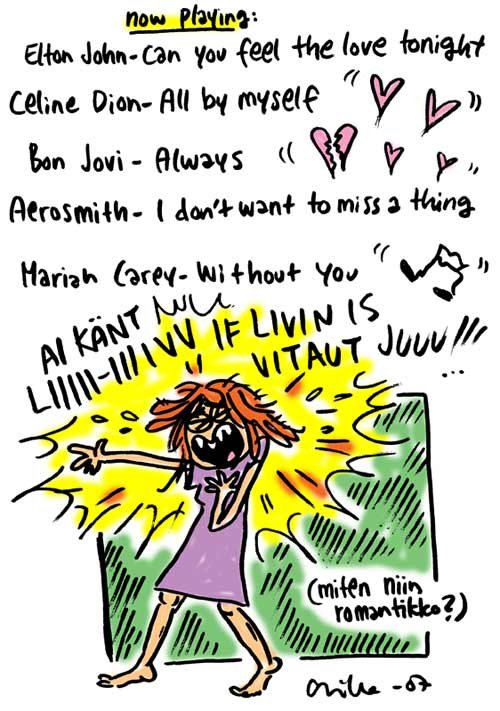 now playing:
Elton John-Can you feel the love tonight
Celine Dion-All by myself
Bon Jovi - Always
Aerosmith- I don't want to miss a thing
Mariah Carey-Without you
AI KÄNT
LIIIII-IIIIVV IF LIVIN IS
VITAUT JUUU!!!
...
(miten niin
romantikko?)
-07